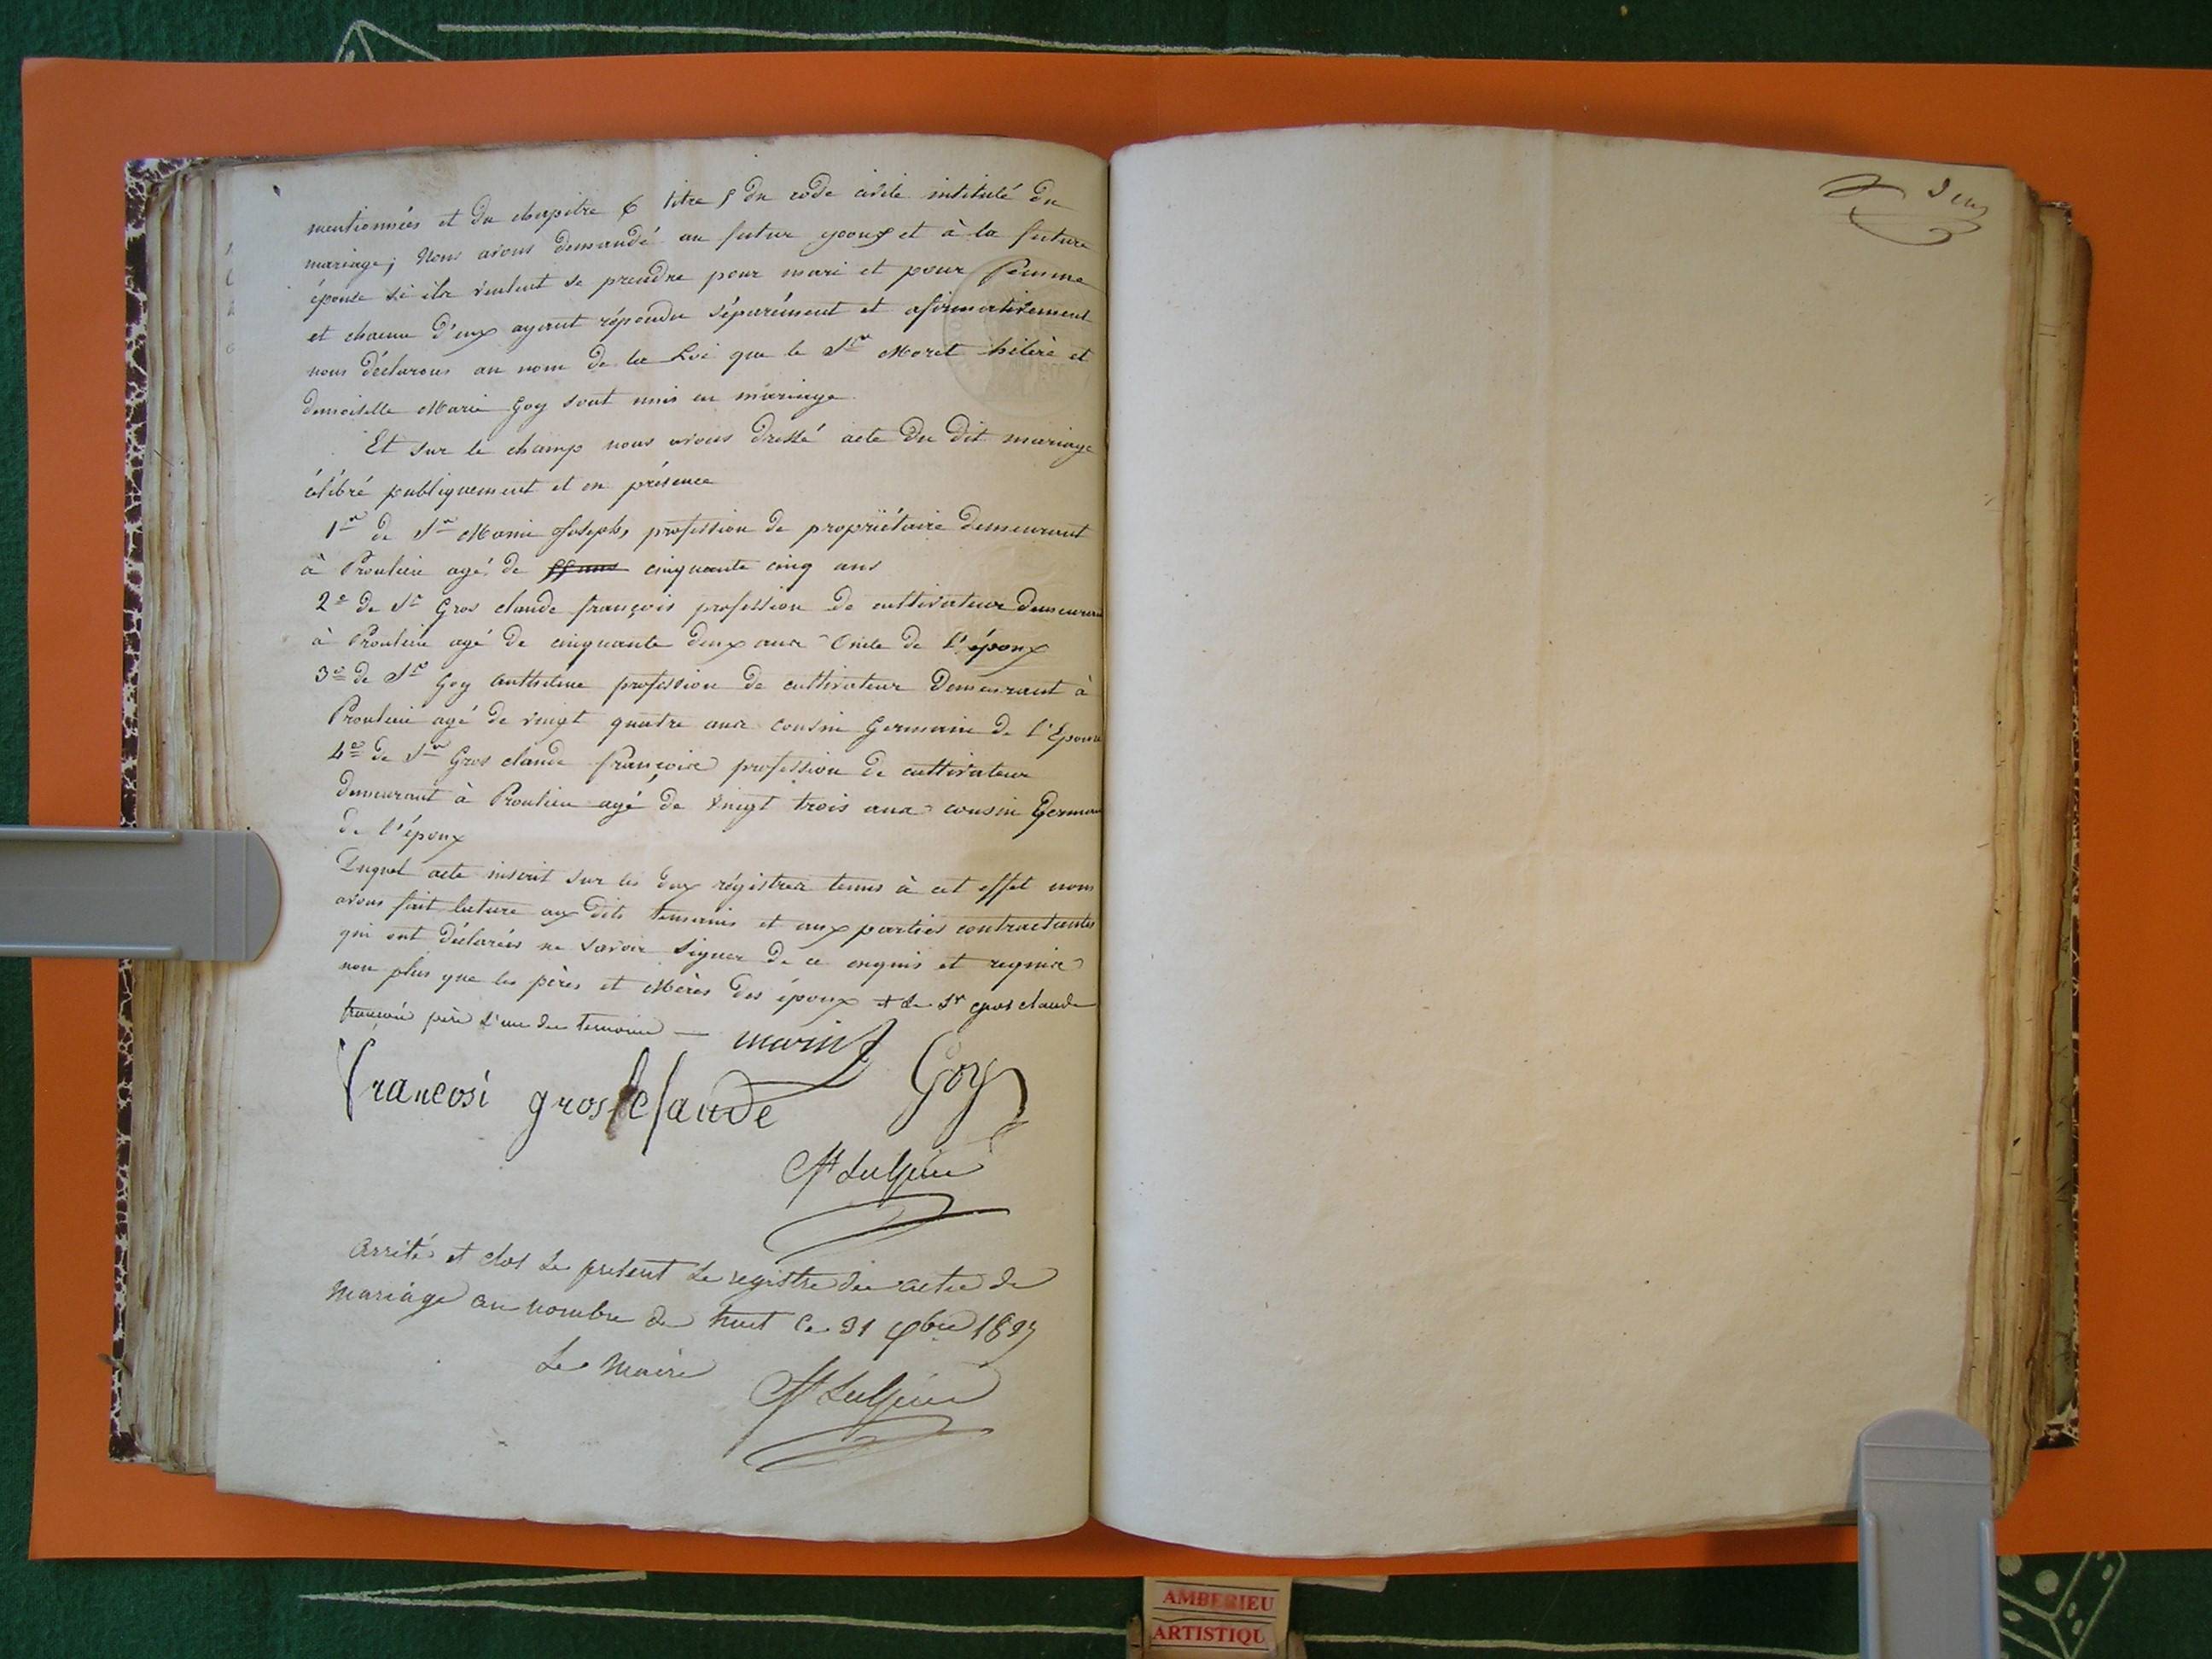 mentionnées et du chapitre 6 titre 5 du code civile intitulé du
mariage; Nous avons demandé au futur epoux et à la future
épouse si ils veulent se prendre pour mari et pour femme
et chacun d'eux ayant répondu séparément et afirmativement
nous déclarons au nom de la Loi que le Sr Moret hilère et
demoiselle Marie Goy sont unis en mariage
Et sur le champ nous avons dressé acte du dit mariage
célébré publiquement et en présence
1er de Sr Marin Joseph, profession de propriétaire demeurant
à Proulieu agé de cinquante cinq ans
2e de Sr Gros claude françois profession de cultivateur demeurant
à Proulieu agé de cinquante deux ans Oncle de l'époux
3e de Sr Goy Anthelme profession de cultivateur demeurant à
Proulieu agé de vingt quatre ans cousin Germain de l'Epouse
4e de Sr Gros claude françois profession de cultivateur
demeurant à Proulieu agé de vingt trois ans cousin Germain
de l'époux
Duquel acte inscrit sur les deux régistres tenus à cet effet nous
avons fait lecture aux dits temoins et aux parties contractantes
qui ont déclarées ne savoir signer de ce enquis et requis
non plus que les pères et Mères des époux + le Sr gros claude
françois père l'un des temoins
marin Goy
francosi grosclaude
Arrêté et clos le présent le registre des actes de
Mariage au nombre de huit le 31 Xbre
Le Maire
AMBERIEU
ARTISTIQU